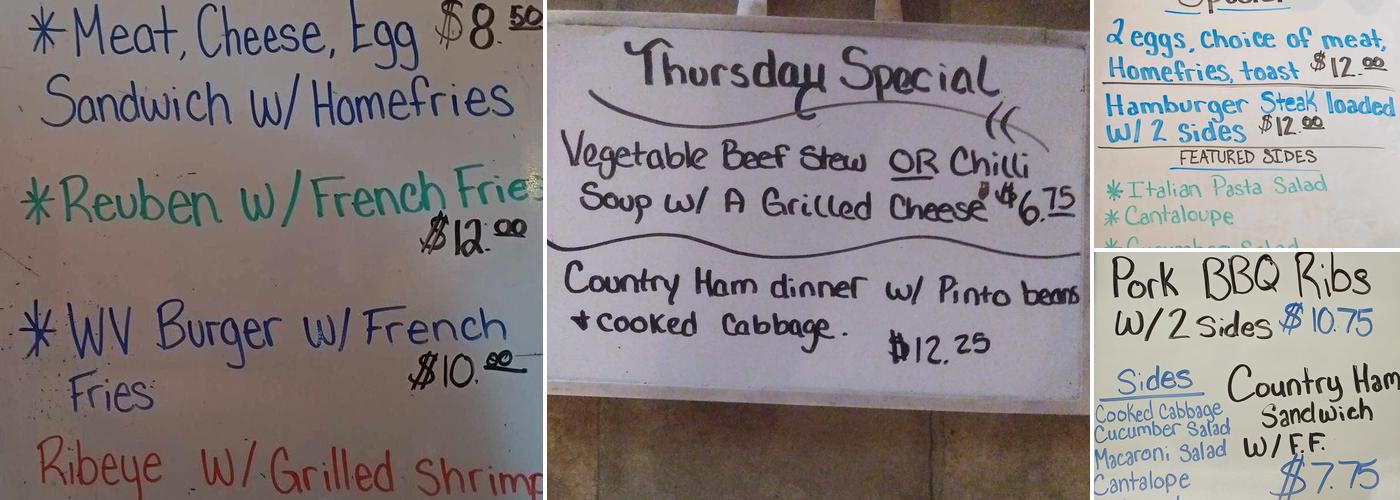 * Meat, Cheese, Egg $8.50
Sandwich w/ Homefries
* Reuben w/ French Fries
$12.00
* WV Burger w/ French
$10.00
Fries
Ribeye w/ Grilled Shrimp
Thursday Special
Vegetable Beef Stew OR Chilli
Soup w/ A Grilled Cheese $6.75
Country Ham dinner w/ Pinto beans
+ cooked Cabbage.
$12.25
Special
2 eggs, choice of meat,
Homefries, toast $12.00
Hamburger Steak loaded
w/ 2 sides $12.00
FEATURED SIDES
* Italian Pasta Salad
* Cantaloupe
* Cucumber Salad
Pork BBQ Ribs
w/ 2 sides $10.75
Sides
Cooked Cabbage
Cucumber Salad
Macaroni Salad
Cantalope
Country Ham
Sandwich
w/ F.F.
$7.75